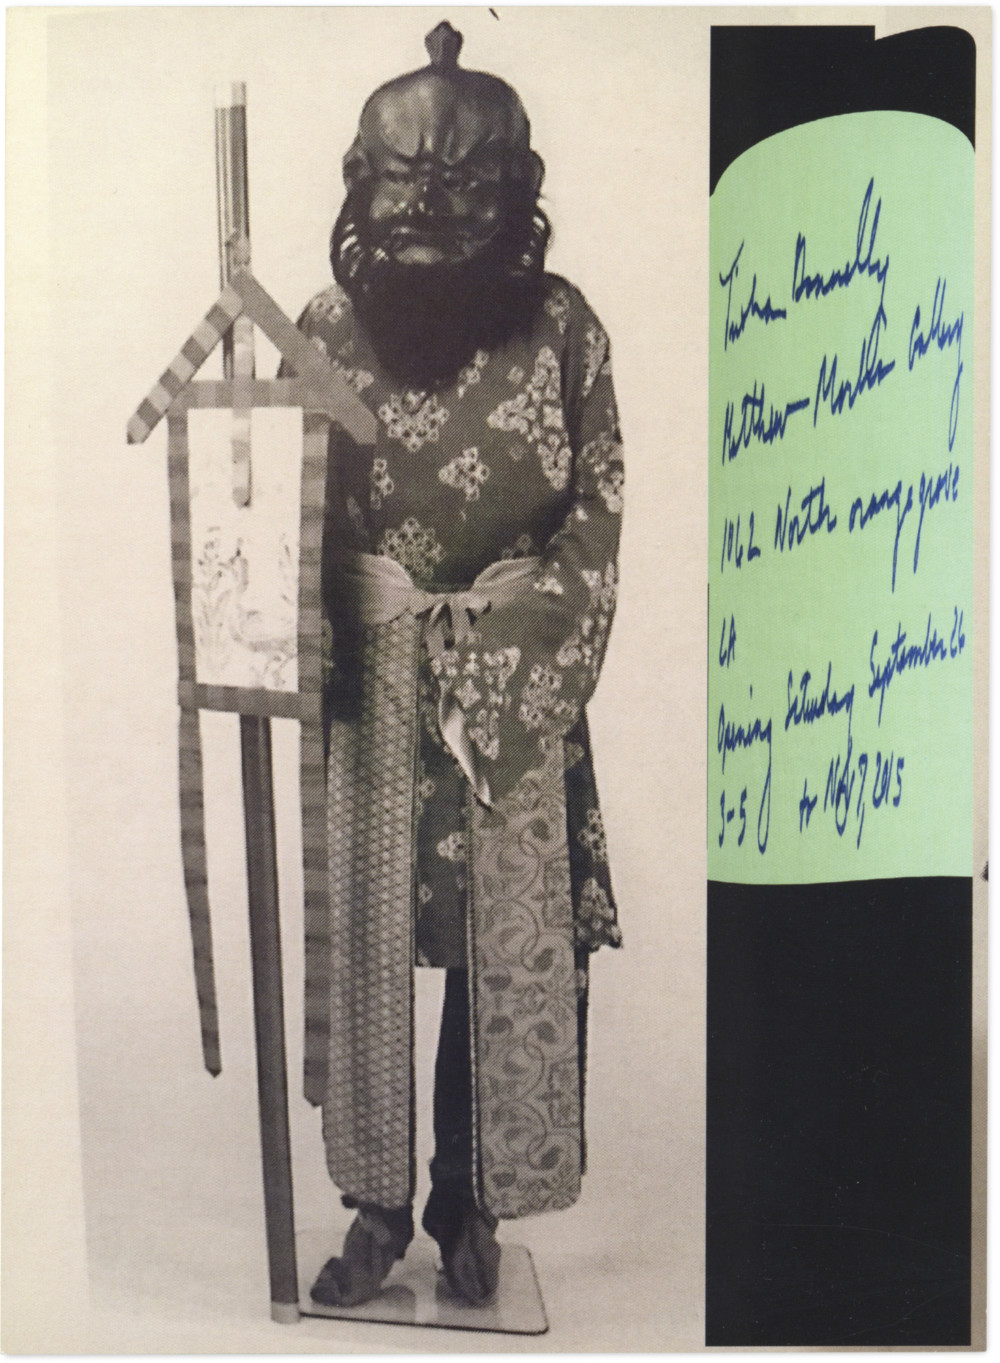 Trisha Donnelly
Matthew Marks Gallery
1062 North orange grove
LA
Opening Saturday September 26
3-5 to Nov 7, 2015